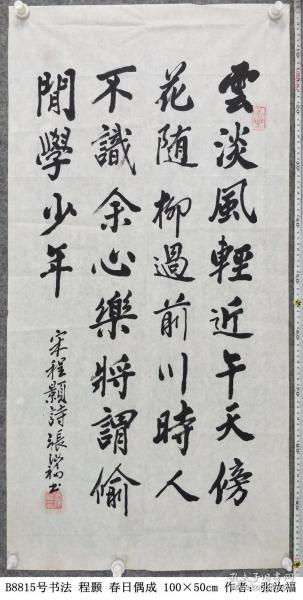 雲淡風輕近午天傍
花随柳過前川時人
不識余心樂將謂偷
閒學少年
宋程顥詩張汝福书
B8815号书法 程颢 春日偶成 100×50cm 作者：张汝福